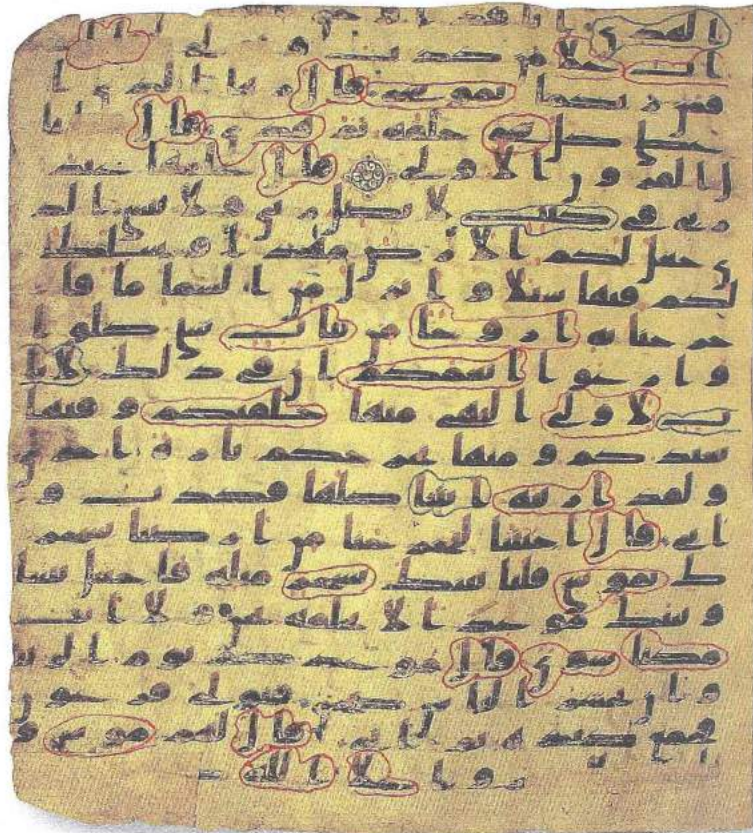 الهدى انا قد اوحى الينا
ان العذاب علا من كذب وتولى
فمن ربكما يموسى قال ربنا الذى ا
عطى كل شى خلقه ثم هدى قال فما با
ل القرون الاولى قال علمها عند
ربى فى كتب لا يضل ربى ولا ينسى الذ
ى جعل لكم الارض مهدا وسلك
لكم فيها سبلا وانزل من السما ما فا
خرجنا به ازوجا من نبات شتى كلوا
وارعوا انعمكم ان فى ذلك لا
يت لاولى النهى منها خلقنكم وفيها
نعيدكم ومنها نخرجكم تارة اخرى
ولقد ارينه ايتنا كلها فكذب و
ابى قال اجئتنا لتخرجنا من ارضنا بسحر
ك يموسى فلناتينك بسحر مثله فاجعل بيننا
وبينك موعدا لا نخلفه نحن ولا انت
مكنا سوى قال موعدكم يوم الزين
ة وان يحشر الناس ضحى فتولى فرعون
فجمع كيده ثم اتى قال لهم موسى و
علا الله